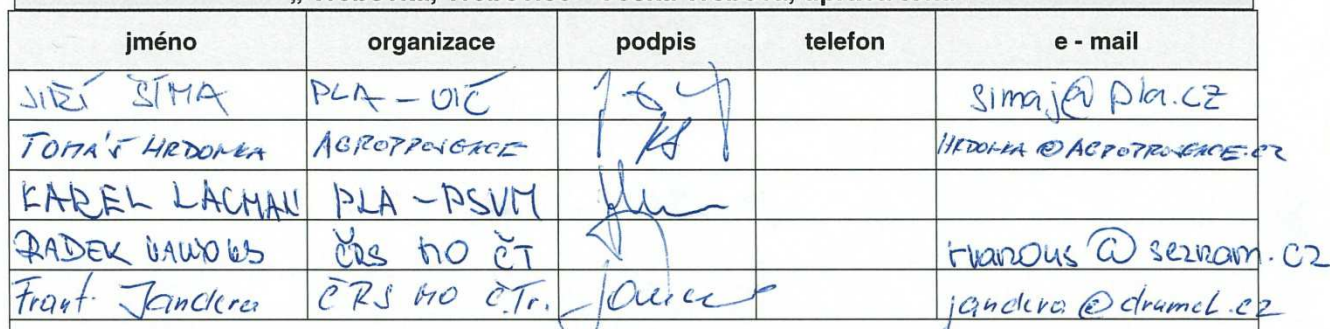 jméno organizace podpis telefon e - mail
JIŘÍ ŠÍMA PLA - OIČ simaj@pla.cz
TOMÁŠ HRDOMKA AGROPROVENCE HRDOMKA@AGROPROVENCE.CZ
KAREL LACMAN PLA - PSVM
RADEK VANOUS ČRS MO ČT rvanous@seznam.cz
Frant. Jandera ČRS MO ČTr. jandera@drumel.cz